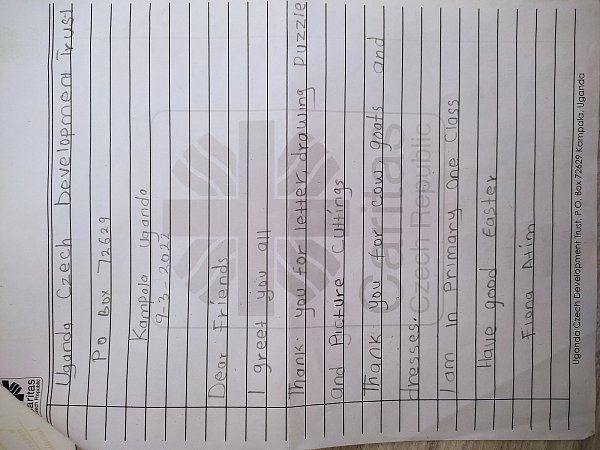 aritas
ech Republic
Uganda Czech Development Trust
PO Box 72629
Kampala Uganda
9-3-2022
Dear Friends
I greet you all
Thank you for letter, drawing Puzzle
and Picture Cuttings
Thank you for cow, goats and
dresses.
I am In Primary One Class
Have good Easter
Fiona Atim
Caritas
Czech Republic
Uganda Czech Development Trust, P.O. Box 72629 Kampala, Uganda